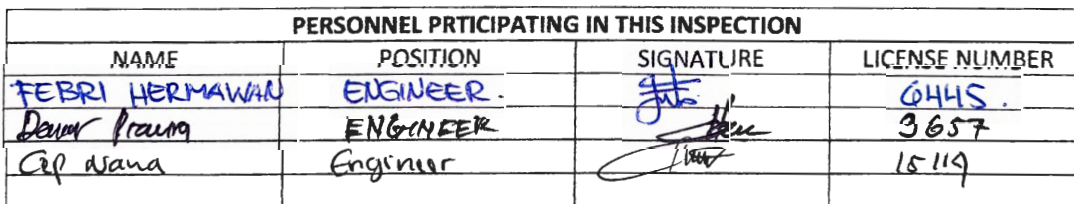 PERSONNEL PRTICIPATING IN THIS INSPECTION
NAME POSITION SIGNATURE LICENSE NUMBER
FEBRI HERMAWAN ENGINEER. 6445.
ENGINEER 3657
Cep Nana Engineer 15119